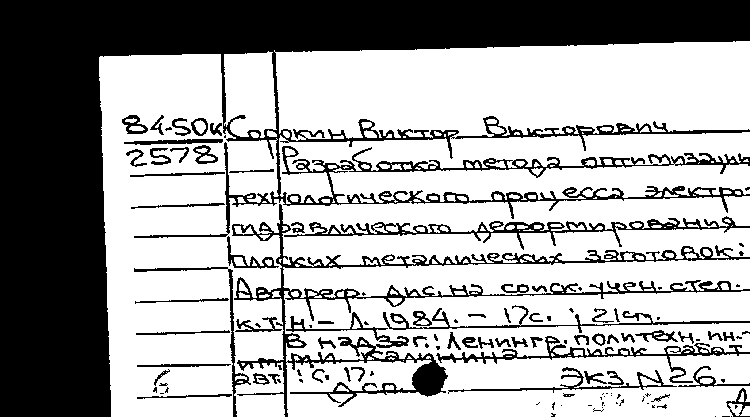 84-50к Сорокин, Виктор Викторович.
2578 Разработка метода оптимизации
технологического процесса электро-
гидравлического деформирования
плоских металлических заготовок:
Автореф. дис. на соиск. учен. степ.
к.т.н. - Л. 1984. - 17с. ; 21см.
В надзаг.: Ленингр. политехн. ин-т
им. М.И. Калинина. Список работ
авт.: с. 17.
6 Д сп. ЭКЗ. N26.